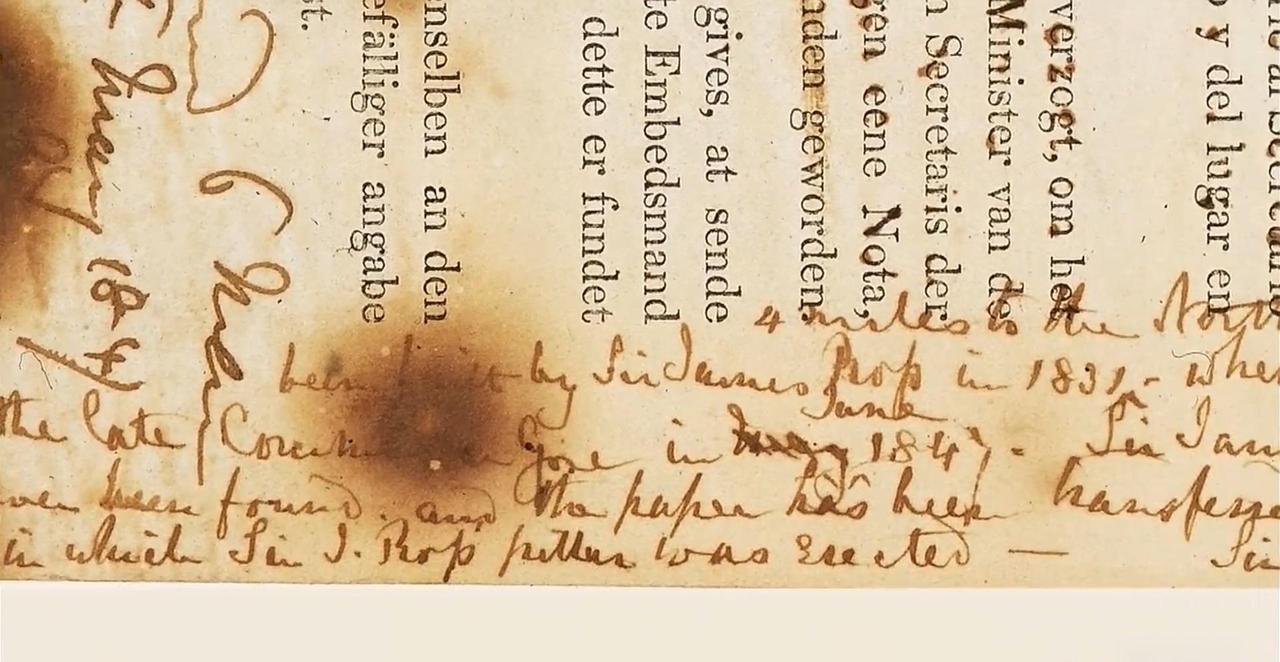 y del lugar en
verzogt, om het
Minister van de
Secretaris der
eene Nota,
geworden.
gives, at sende
te Embedsmand
dette er fundet
enselben an den
efälliger angabe
st.
4 miles to the North
been built by Sir James Ross in 1831 - wher
June
the late Comm Gore in May 1847. - Sir Jam
been found. and the paper has been transferre
in which Sir J. Ross pillar was erected — Sir